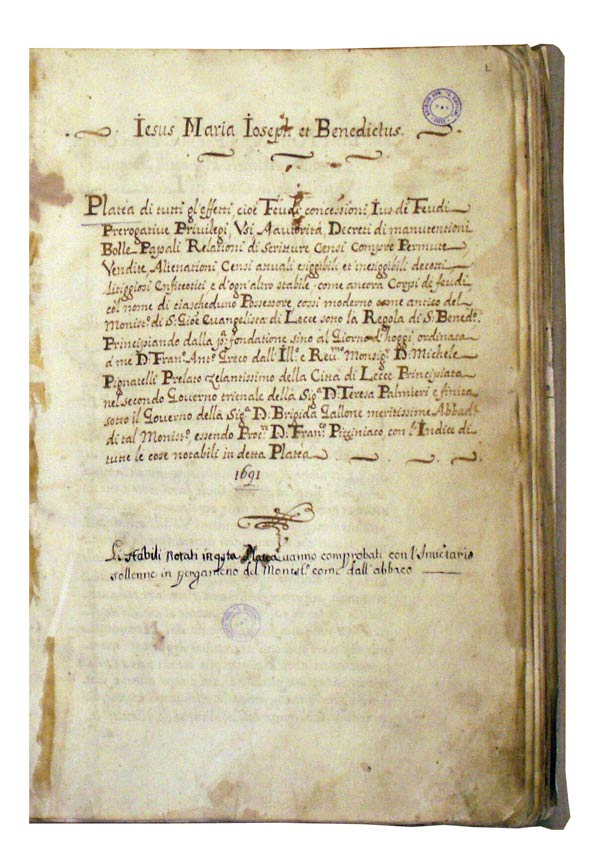 1
Iesus Maria Ioseph et Benedictus.
Platea di tutti gl'effetti, cioè Feudi concessioni Ius di Feudi
Prerogative Privilegi, Usi Aautorità, Decreti di manutentioni
Bolle Papali Relationi di Scritture Censi Compre Permute
Vendite, Alienationi Censi attuali esiggibili et inesiggibili decotti
Litiggiosi Enfiteotici e d'ogn'altro stabile come ancora Corpi de feudi
col nome di ciascheduno Possessore cossi moderno come antico del
Monistº. di S. Gioẽ Evangelista di Lecce sotto la Regola di S. Benedº.
Principiando dalla pª. fondatione sino al Giorno d'hoggi ordinata
à me D. Franº. Antº. Greco dall'Illº. e Reuᵐº. Monsigʳ. D. Michele
Pignatelli Prelato Zelantissimo della Città di Lecce Principiata
nel secondo Governo trienale della Sigʳᵃ D. Teresa Palmieri e finita
sotto il Governo della Sigʳᵃ D. Brigida Gallone meritissime Abbadᵉ.
di tal Monistº. essendo Procʳᵉ. D. Franº. Pizziniaco, con l'Indice di
tutte le cose notabili in detta Platea
1691
Li stabili notati in qsta Platea vanno comprobati con l'Inuētario
sollenne in pergameno del Monistº. come dall'abbaco